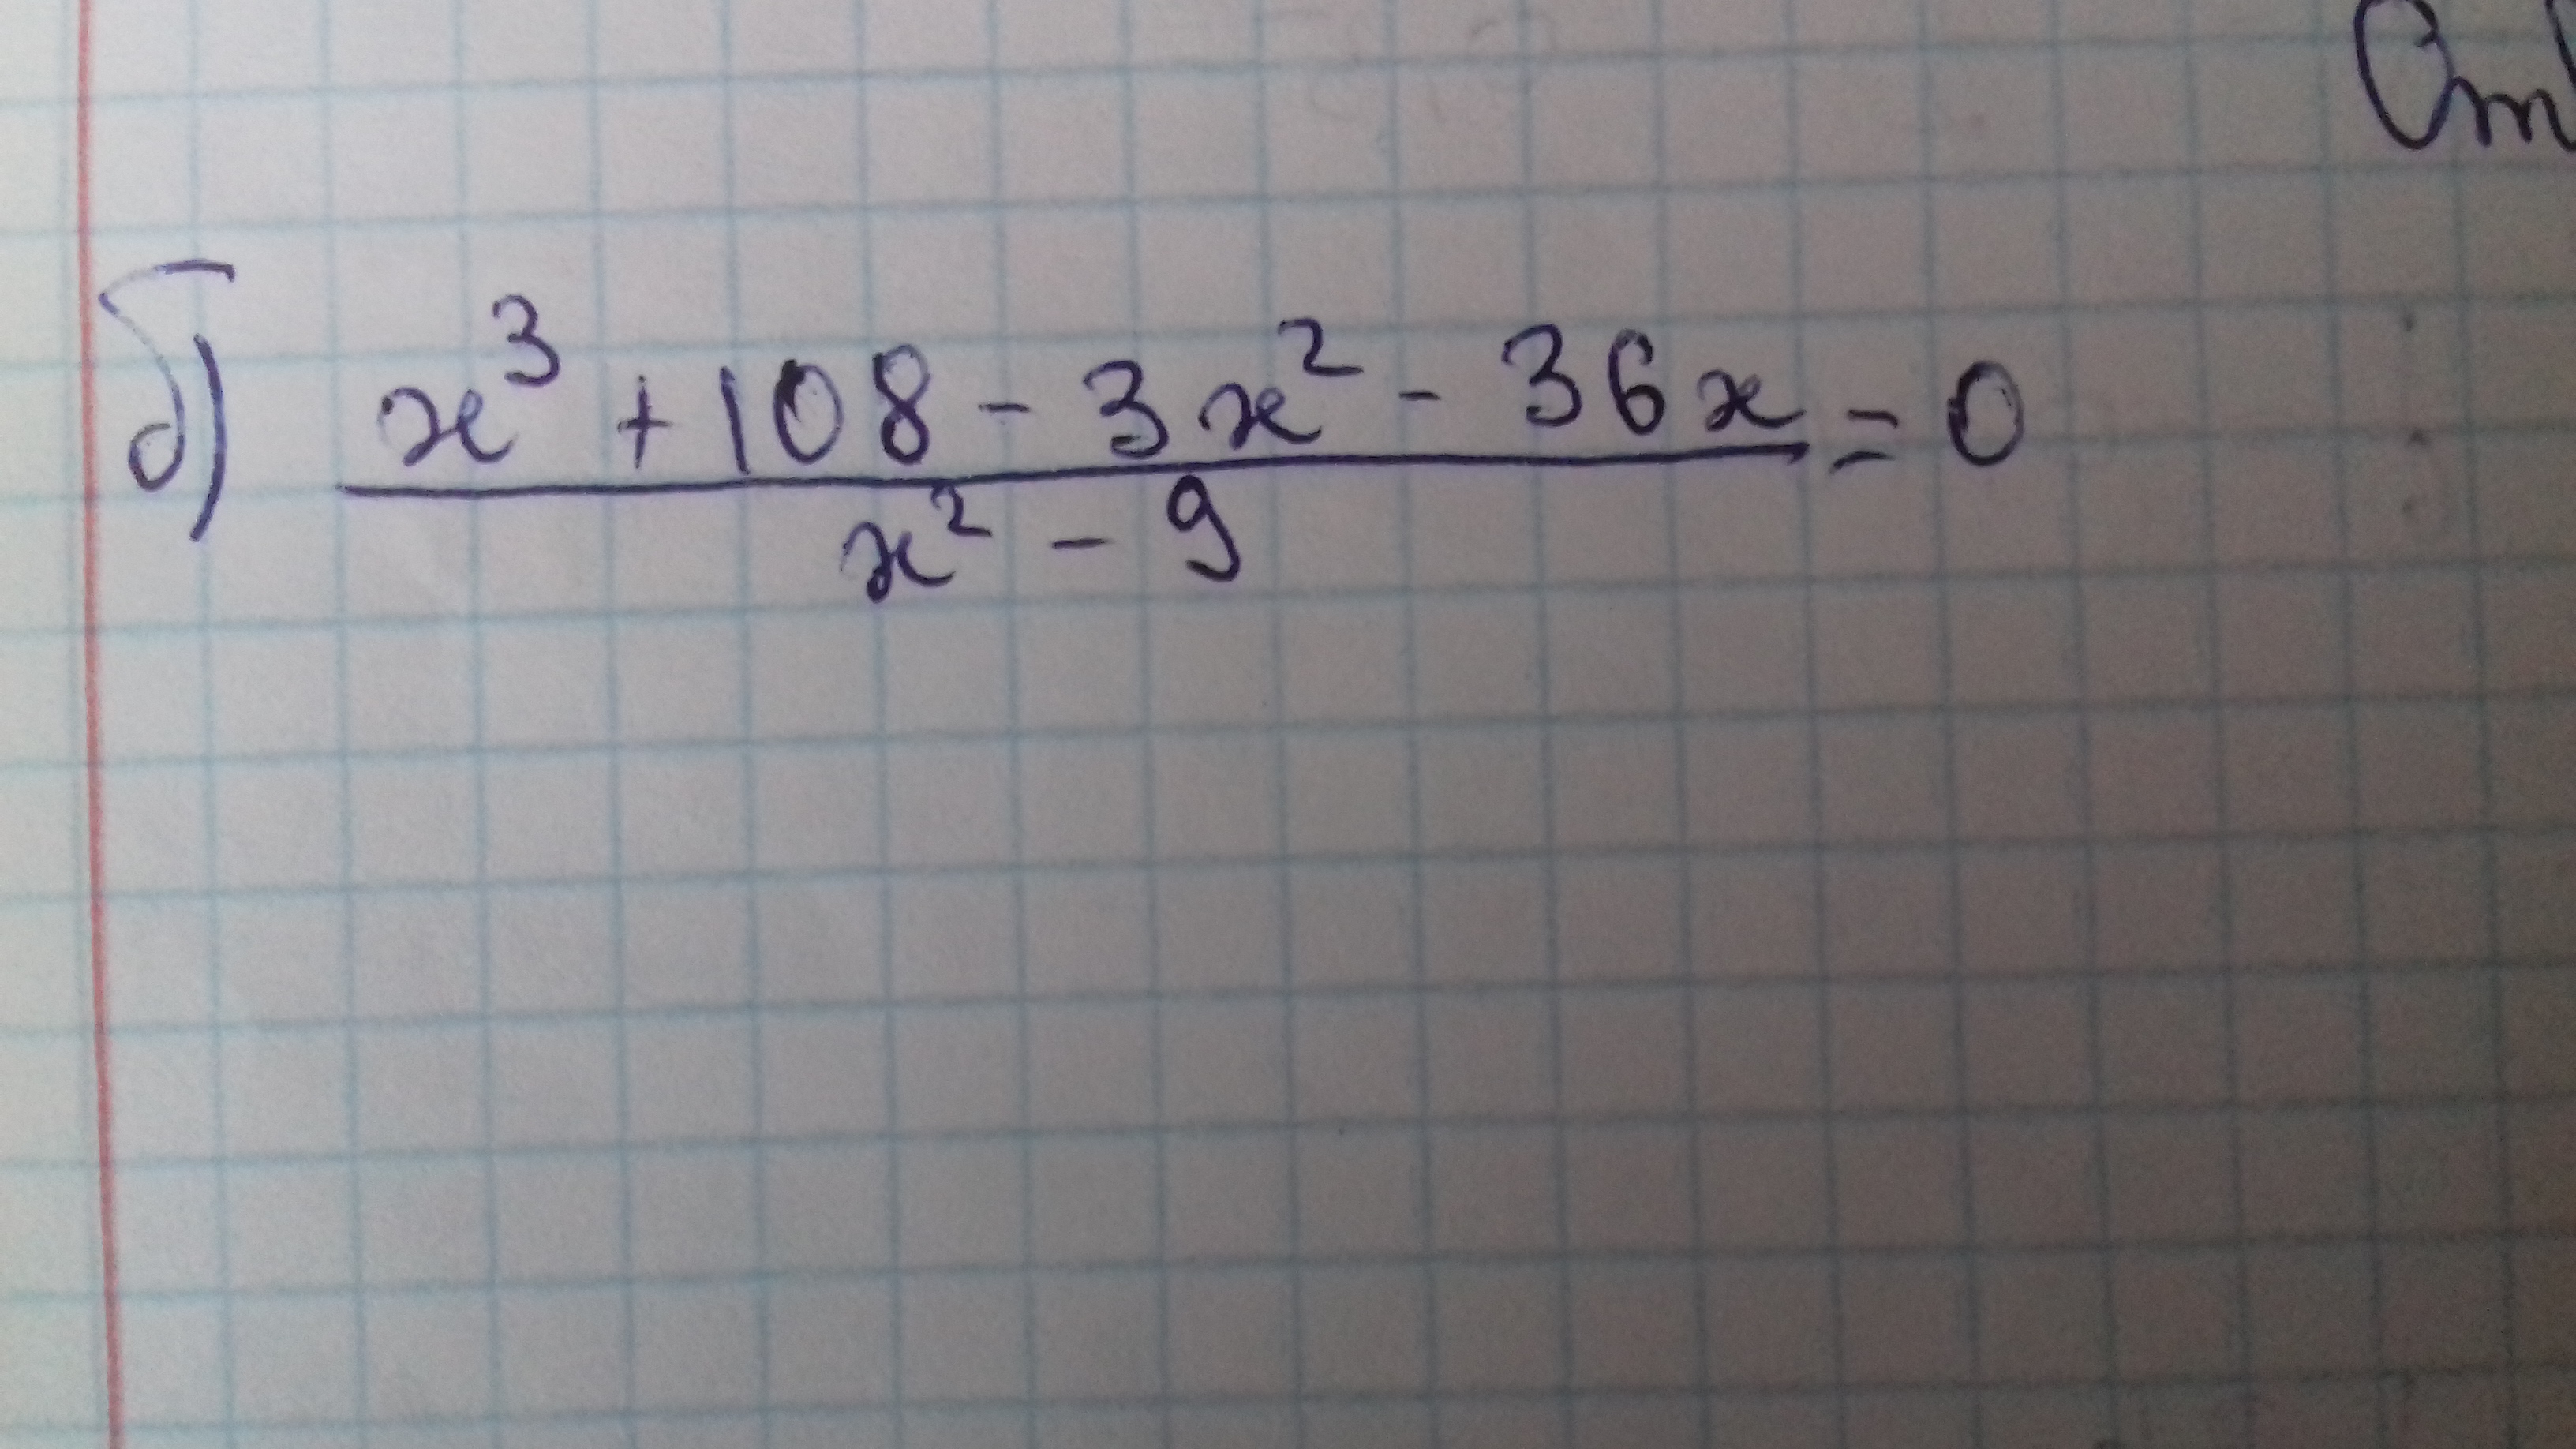 б) x³ + 108 - 3x² - 36x / x² - 9 = 0